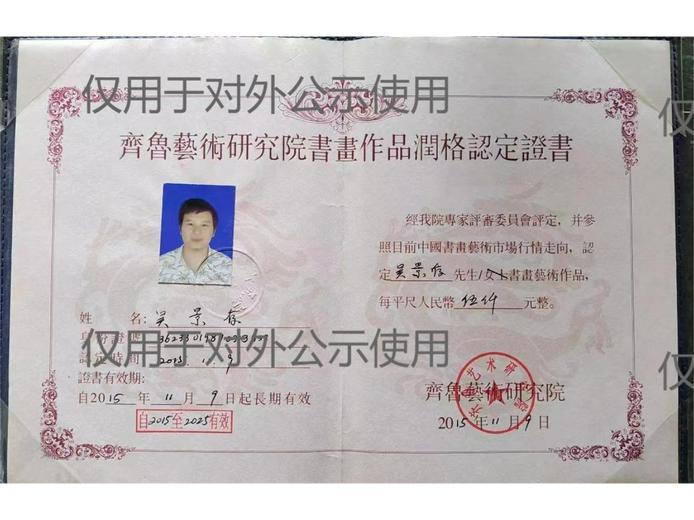 仅用于对外公示使用
齊魯藝術研究院書畫作品潤格認定證書
經我院專家評審委員會評定，并參
照目前中國書畫藝術市場行情走向，認
定 吴景存 先生/女士書畫藝術作品，
每平尺人民幣 伍仟 元整。
姓 名: 吴景存
身份證號
認定時間 2015. 11. 9
仅用于对外公示使用
證書有效期:
自2015 年 11 月 9 日起長期有效
自2015至2025有效
齊魯藝術研究院
2015 年 11 月 9 日
仅
仅